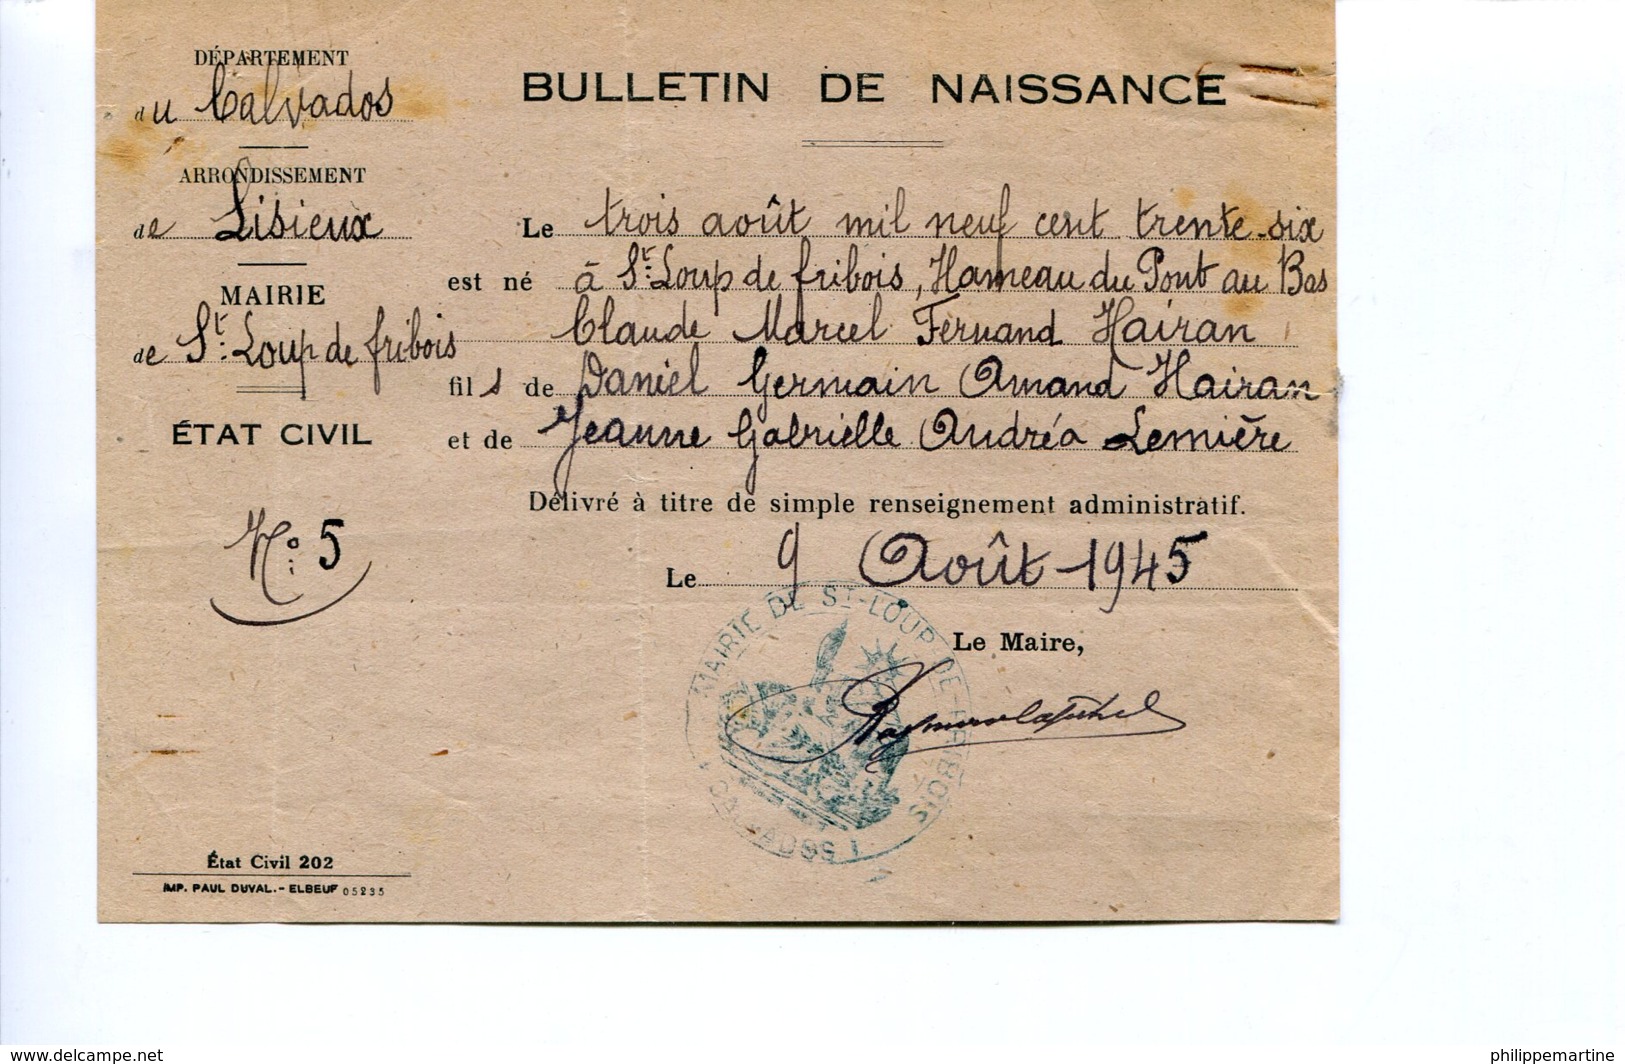 DÉPARTEMENT
du Calvados
ARRONDISSEMENT
de Lisieux
MAIRIE
de St. Loup de fribois
ÉTAT CIVIL
No. 5
BULLETIN DE NAISSANCE
Le trois août mil neuf cent trente-six
est né à St. Loup de fribois, Hameau du Pont au Bas
Claude Marcel Fernand Hairan
fils de Daniel Germain Amand Hairan
et de Jeanne Gabrielle Andréa Lemière
Délivré à titre de simple renseignement administratif.
Le 9 Août 1945
Le Maire,
MAIRIE DE ST-LOUP-DE-FRIBOIS
État Civil 202
IMP. PAUL DUVAL.- ELBEUF 05235
https://www.delcampe.net
philippemartine